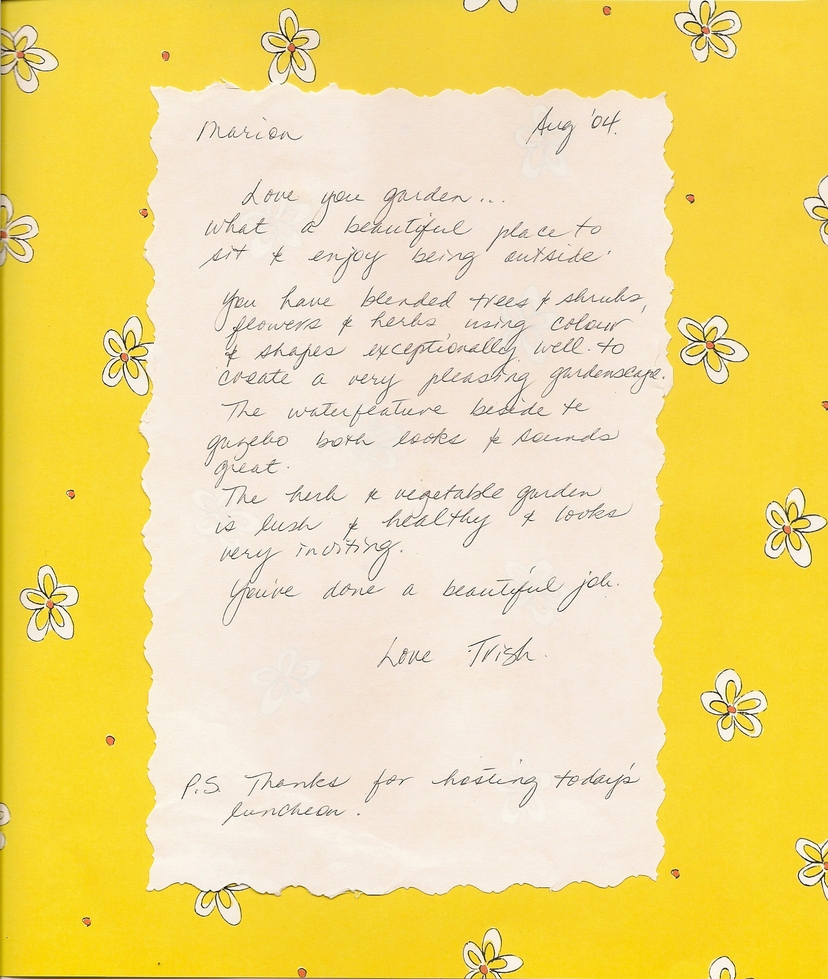 Marion
Aug '04.
Love you garden...
What a beautiful place to
sit & enjoy being outside.
You have blended trees & shrubs,
flowers & herbs using colour
& shapes exceptionally well to
create a very pleasing gardenscape.
The waterfeature beside the
gazebo both looks & sounds
great.
The herb & vegetable garden
is lush & healthy & looks
very inviting.
You've done a beautiful job.
Love Trish.
P.S. Thanks for hosting today's
luncheon.